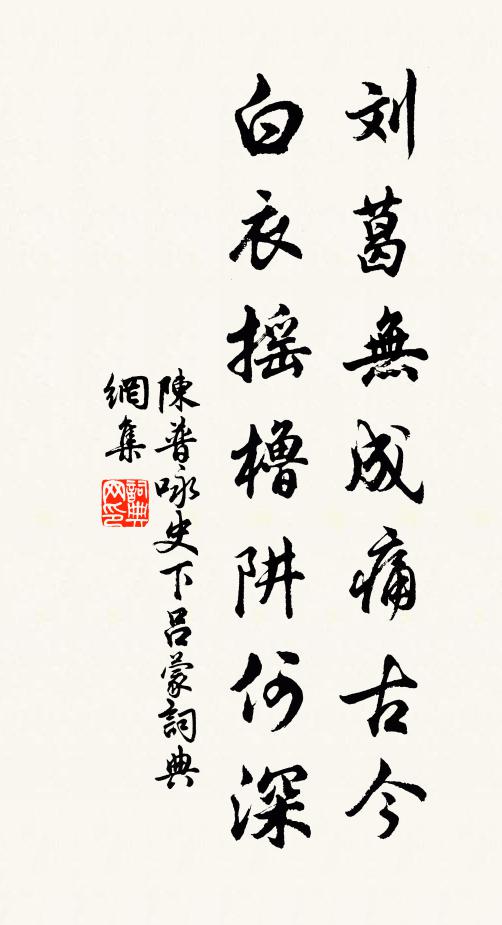 刘葛無成痛古今
白衣摇櫓阱何深
陳普咏史下吕蒙詞典
網集
詞典
网印